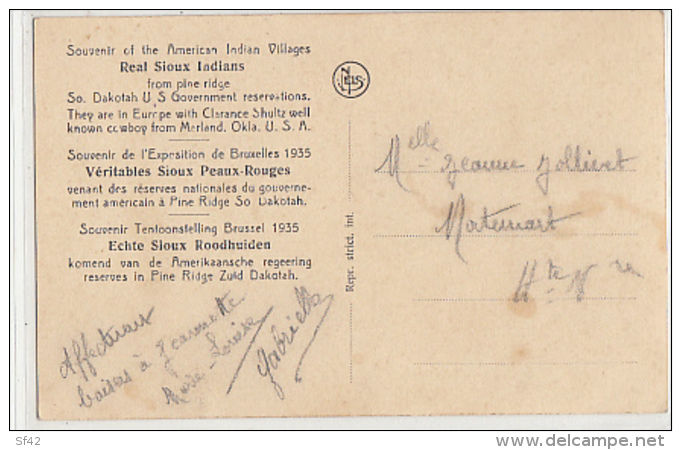 Souvenir of the American Indian Villages
Real Sioux Indians
from pine ridge
So. Dakotah U,S Government reservations.
They are in Europe with Clarance Shultz well
known cowboy from Merland. Okla. U. S. A.
Souvenir de l'Exposition de Bruxelles 1935
Véritables Sioux Peaux-Rouges
venant des réserves nationales du gouverne-
ment américain à Pine Ridge So. Dakotah.
Souvenir Tentoonstelling Brussel 1935
Echte Sioux Roodhuiden
komend van de Amerikaansche regeering
reserves in Pine Ridge Zuid Dakotah.
Affectueux
baisers à Jeannette
Marie-Louise
Gabrielle
NELS
Repr. strict. int.
Melle Jeanne Jollivet
Hte
Sf42
www.delcampe.net